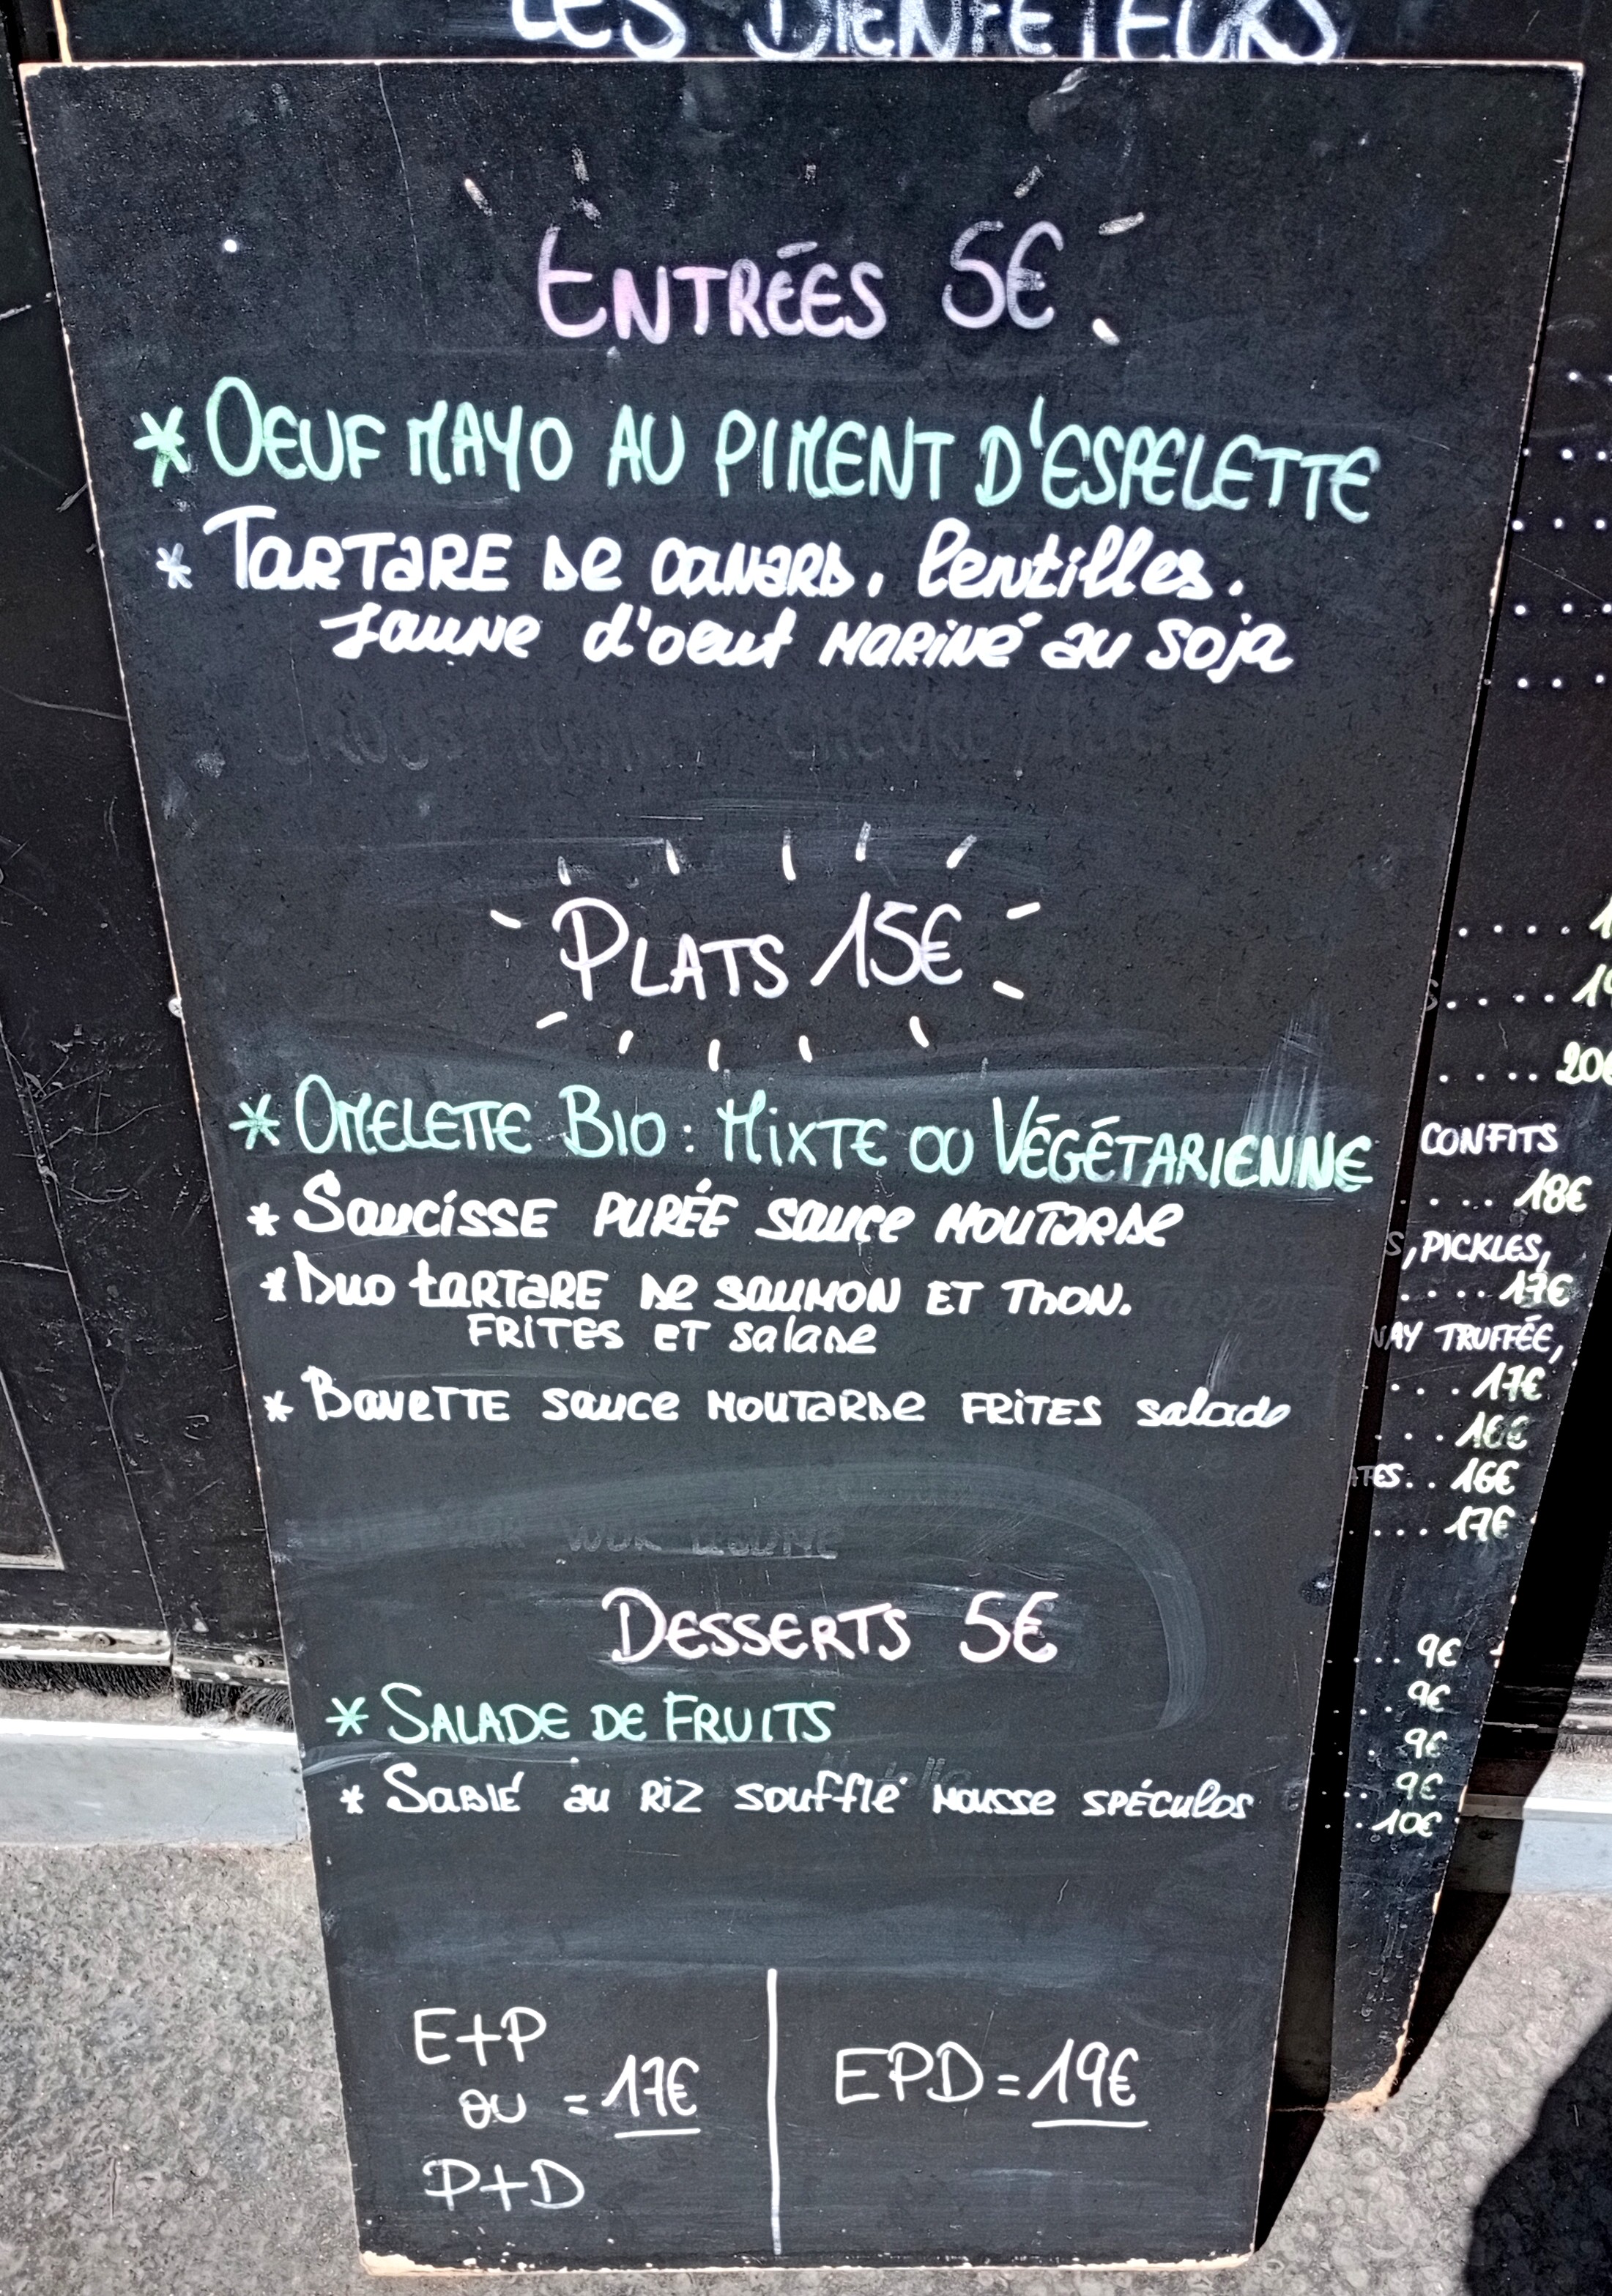 LES BIENFETEURS
ENTRÉES 5€
* OEUF MAYO AU PIMENT D'ESPELETTE
* TARTARE DE CANARD, lentilles.
Jaune d'oeuf MARINÉ au soja
CHEVRE / MIEL
PLATS 15€
* OMELETTE BIO : MIXTE OU VÉGÉTARIENNE
* SAUCISSE PURÉE sauce MOUTARDE
* Duo tARTARE De SAUMON ET THON.
FRITES ET salade
* BAVETTE sauce MOUTARDE FRITES salade
DESSERTS 5€
* SALADE DE FRUITS
* SABLÉ au RIZ soufflé MOUSSE SPÉCULOS
E+P
OU = 17€
P+D
EPD = 19€
20€
CONFITS
.... 18€
, PICKLES,
.... 17€
TRUFFÉE,
... 17€
... 16€
.. 16€
.... 17€
... 9€
.. 9€
. 9€
.. 9€
. 10€